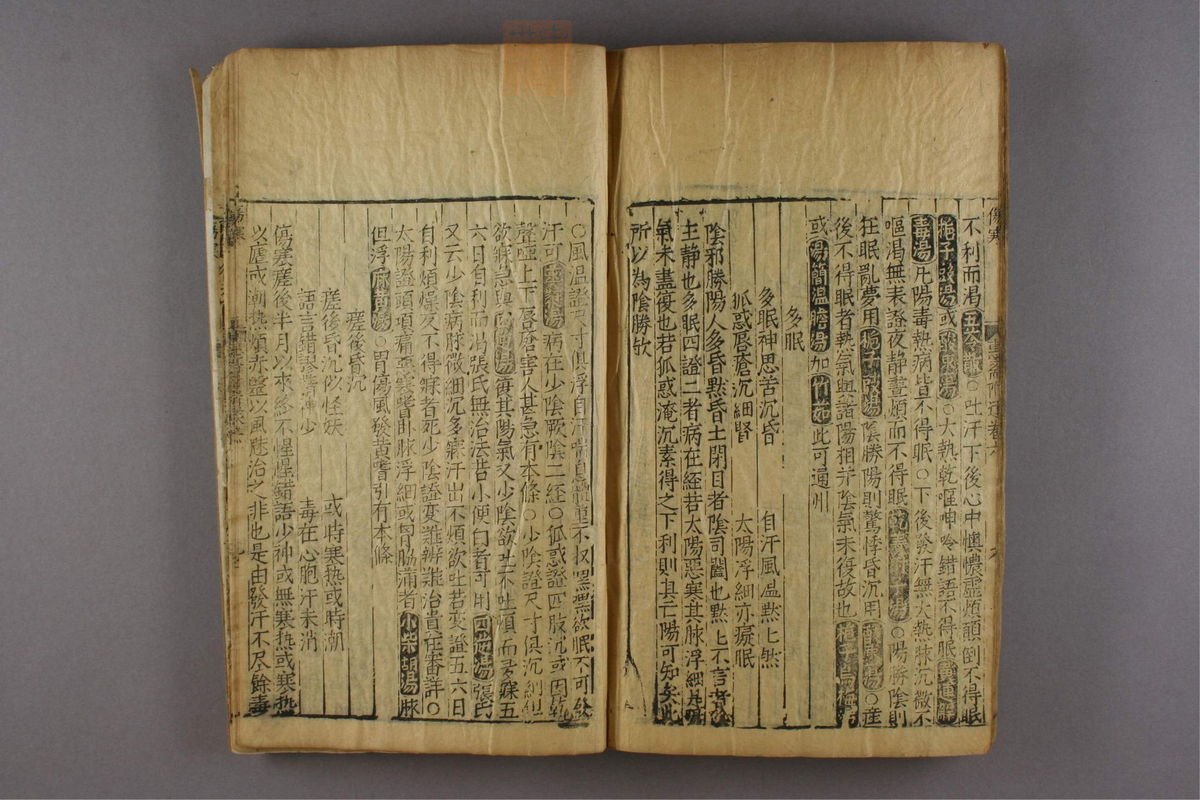 不利而渴五苓散○吐汗下後心中懊憹虛煩顛倒不得眠
梔子豉湯或酸棗湯○大熱乾嘔呻吟錯語不得眠
毒湯凡陽毒熱病皆不得眠○下後發汗無大熱脉沉微不
嘔渴無表證夜靜晝煩而不得眠 ○陽勝陰則
狂眠亂夢用梔子豉湯陰勝陽則驚悸昏沉用酸棗湯○産
後不得眠者熱氣與諸陽相并陰氣未復故也
或湯簡温膽湯加竹茹此可通州
多眠
多眠神思苦沉昏 自汗風温㸃〻㸃
狐惑唇瘡沉細腎 太陽浮細亦凝眠
陰邪勝陽人多昏默昏士閉目者陰司闔也黙〻不言
主静也多眠四證二者病在經若太陽惡寒其脉浮細是
氣未盡復也若狐惑淹沉素得之下利則其亡陽可知矣此
所以為陰勝欤
○風温證尺寸俱浮自汗喘息體重不収黙黙欲眠不可發
汗可葳蕤湯病在少陰厥陰二經○狐惑證四肢沉或因
聲啞上下唇瘡害人甚急有本條○少陰證尺寸俱沉細但
欲寐急與四逆湯復其陽氣又少陰欲吐不吐煩而多寐五
六日自利而渴張氏無治法若小便白者可用四逆湯張氏
又云少陰病脉微細沉多寐汗出不煩欲吐若変證五六日
自利煩燥反不得寐者死少陰證変難辨難治貴在審詳○
太陽證頭項痛惡寒嗜卧脉浮細或胷脇滿者小柴胡湯脉
但浮麻黄湯○胃傷風發黄嘗引有本條
瘥後昏沉
瘥後昏沉似怪妖 或時寒热或時潮
語言錯謬精神少 毒在心胞汗未消
傷寒瘥後半月以來終不惺惺錯語少神或無寒热或寒热
以瘧或潮热頰赤盤以風魅治之非也是由發汗不尽餘毒